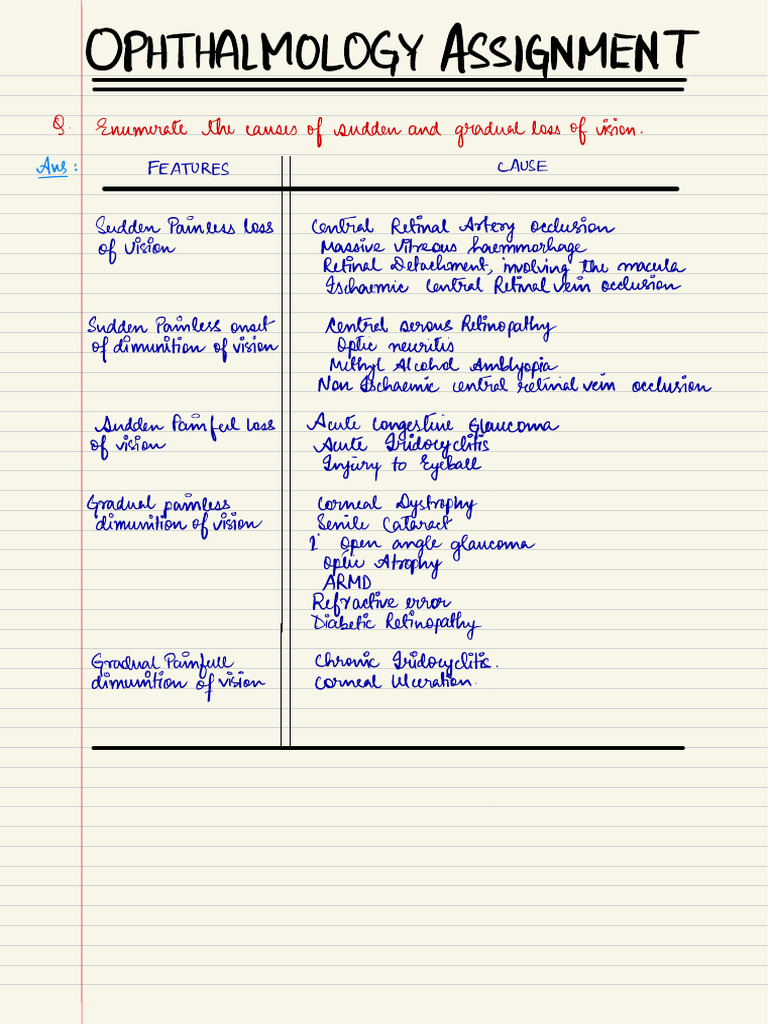 OPHTHALMOLOGY ASSIGNMENT
Q. Enumerate the causes of sudden and gradual loss of vision.
Ans: FEATURES CAUSE
Sudden Painless loss Central Retinal Artery occlusion
of vision Massive vitreous haemmorhage
Retinal Detachment, involving the macula
Ischaemic Central Retinal vein occlusion
Sudden Painless onset Central serous Retinopathy
of dimunition of vision Optic neuritis
Methyl Alcohol Amblyopia
Non Ischaemic central retinal vein occlusion
Sudden Painful loss Acute Congestive Glaucoma
of vision Acute Iridocyclitis
Injury to Eyeball
Gradual painless Corneal Dystrophy
dimunition of vision Senile Cataract
1° Open angle glaucoma
Optic Atrophy
ARMD
Refractive error
Diabetic Retinopathy
Gradual Painfull Chronic Iridocyclitis.
dimunition of vision Corneal Ulceration.